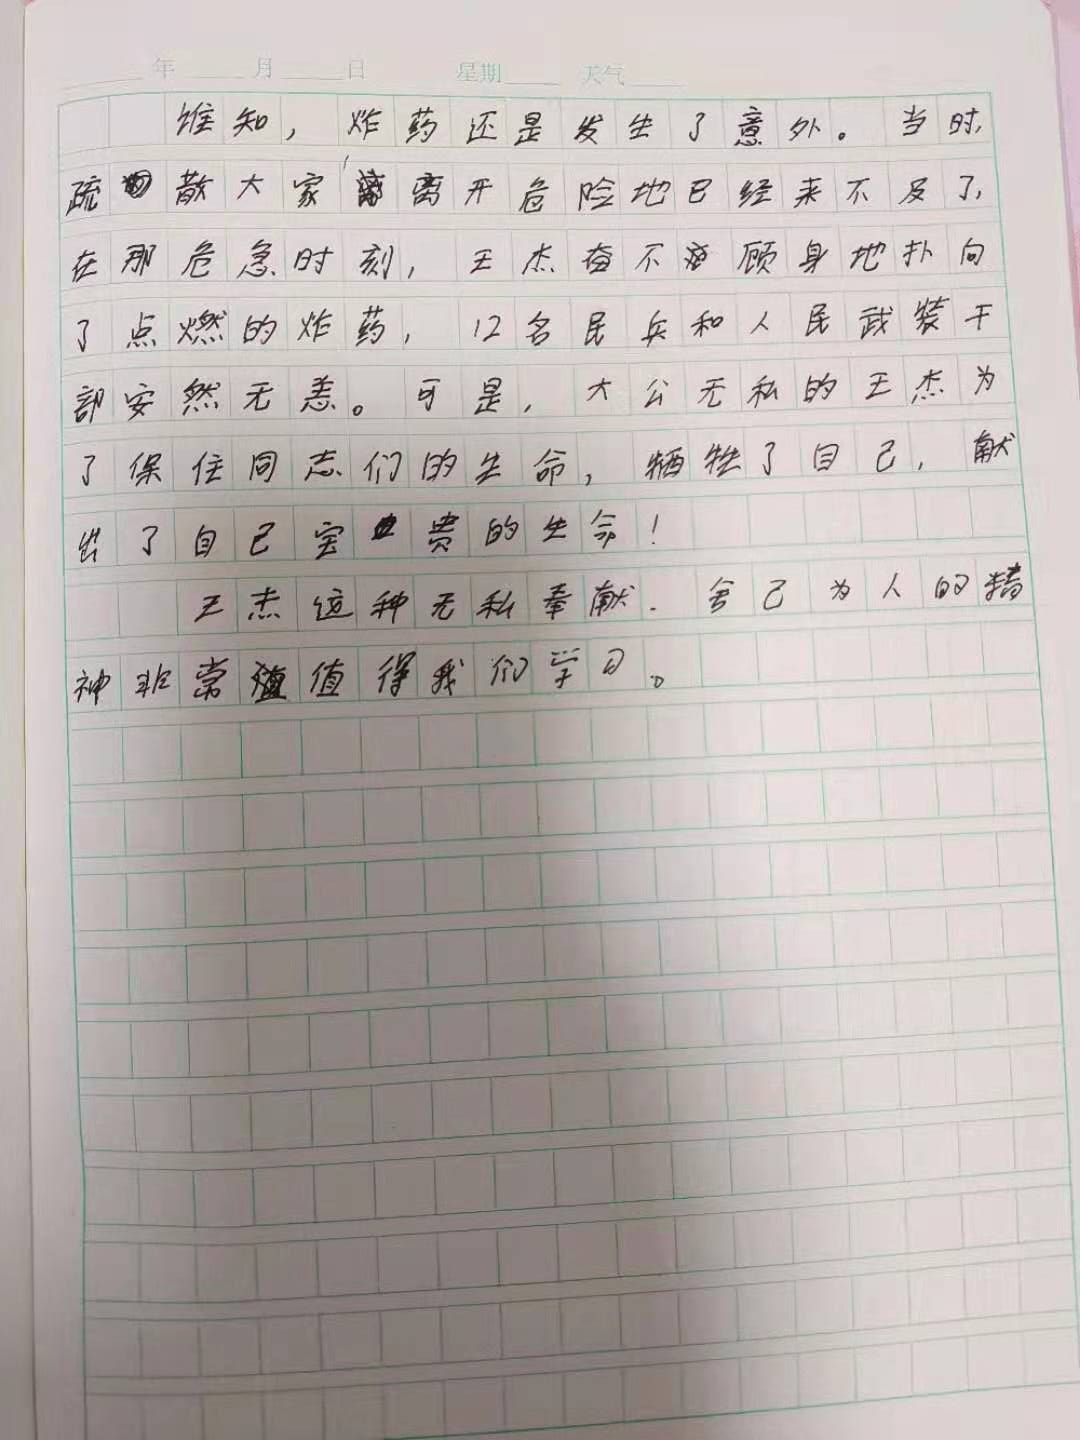 年 月 日 星期 天气
谁知，炸药还是发生了意外。当时，
疏散大家离开危险地已经来不及了，
在那危急时刻，王杰奋不顾身地扑向
了点燃的炸药，12名民兵和人民武装干
部安然无恙。可是，大公无私的王杰为
了保住同志们的生命，牺牲了自己，献
出了自己宝贵的生命！
王杰这种无私奉献、舍己为人的精
神非常值得我们学习。